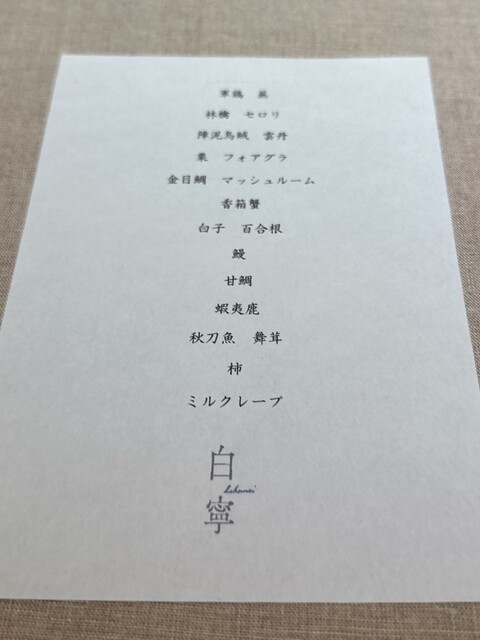 軍鶏
林檎　セロリ
障泥烏賊　雲丹
栗　フォアグラ
金目鯛　マッシュルーム
香箱蟹
白子　百合根
鰻
甘鯛
蝦夷鹿
秋刀魚　舞茸
柿
ミルクレープ
白
寧